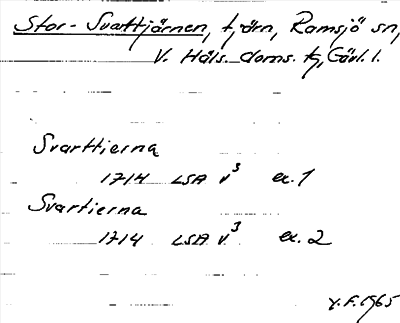 Stor-Svarttjärnen, tjärn, Ramsjö sn,
V. Häls. doms. tg, Gävl. l.
Svarttierna
1714 LSA V³ ex. 1
Svartierna
1714 LSA V.³ ex. 2
Y.F. 1965